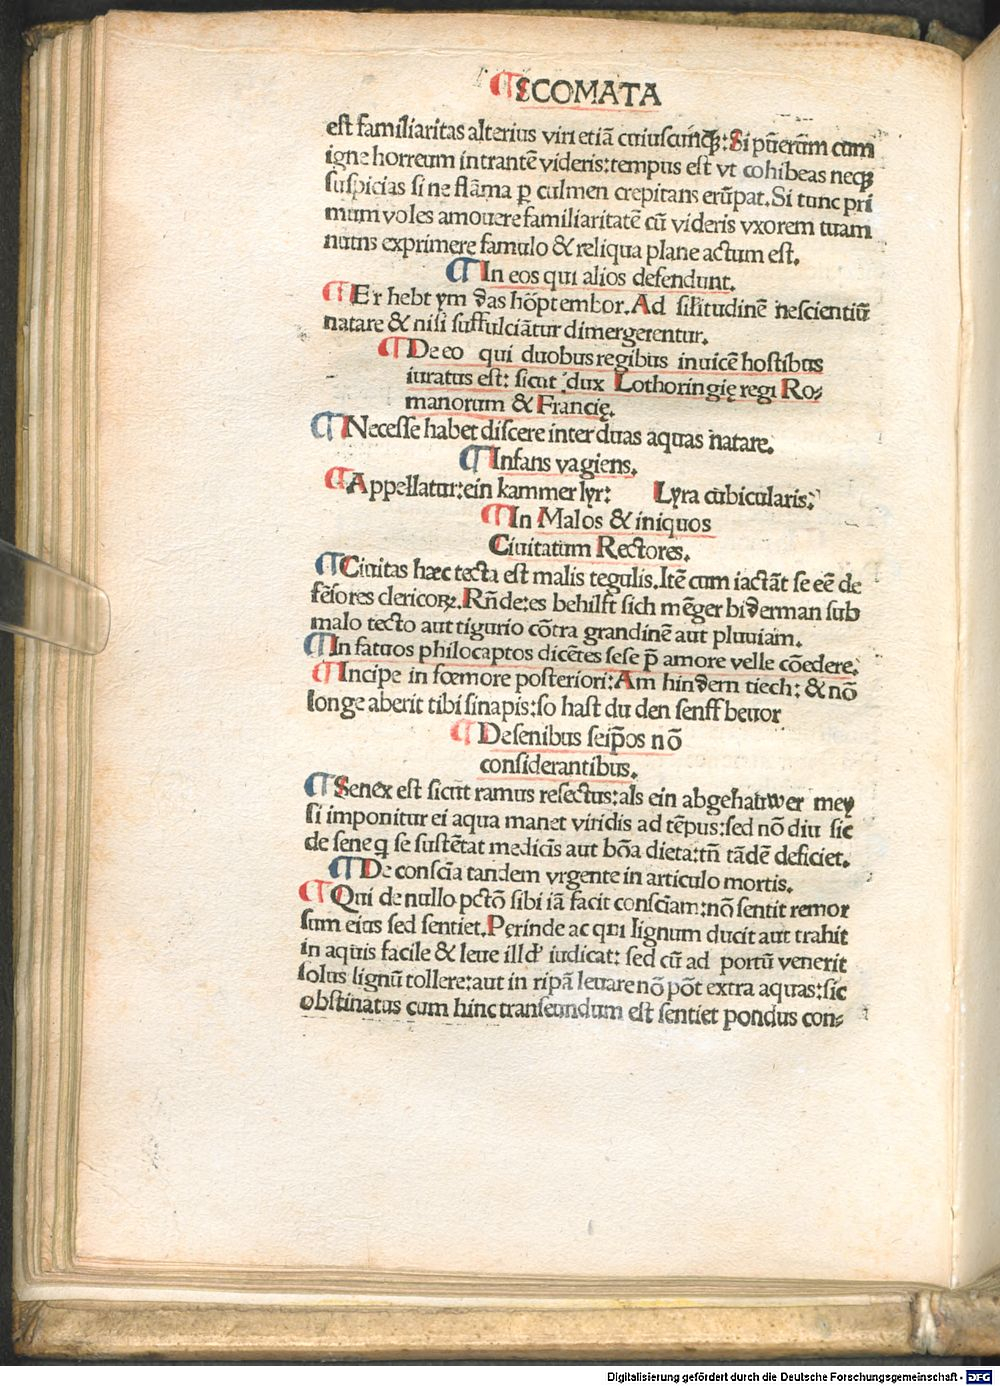 ¶ SCOMATA
est familiaritas alterius viri etiã cuiuscũq;: Si pũerũm cum
igne horreum intrantẽ videris: tempus est vt cohibeas neq;
suspicias si ne flãma ꝑ culmen crepitans erũpat. Si tunc pri
mum voles amouere familiaritatẽ cũ videris vxorem tuam
nutns exprimere famulo & reliqua plane actum est.
¶ In eos qui alios defendunt.
¶ Er hebt ym das höptembor. Ad silitudinẽ nescientiũ
natare & nisi suffulciãtur dimergerentur.
¶ De eo qui duobus regibus inuicẽ hostibus
iuratus est: sicut dux Lothoringię regi Ro⸗
manorum & Francię.
¶ Necesse habet discere inter duas aquas natare.
¶ Infans vagiens.
¶ Appellatur: ein kammer lyr: Lyra cubicularis:
¶ In Malos & iniquos
Ciuitatum Rectores.
¶ Ciuitas hæc tecta est malis tegulis. Itẽ cum iactãt se eẽ de
fẽsores clericoꝝ. Rñde: es behilft sich mẽger biderman sub
malo tecto aut tigurio cõtra grandinẽ aut pluuiam.
¶ In fatuos philocaptos dicẽtes sese p̃ amore velle cõedere.
¶ Incipe in fœmore posteriori: Am hindern tiech: & nõ
longe aberit tibi sinapis: so hast du den senff beuor
¶ De senibus seip̃os nõ
considerantibus.
¶ Senex est sicut ramus resectus: als ein abgehauwer mey
si imponitur ei aqua manet viridis ad tẽpus: sed nõ diu sic
de sene q̨ se sustẽtat medicis aut bõa dieta: tñ tãdẽ deficiet.
¶ De conscĩa tandem vrgente in articulo mortis.
¶ Qui de nullo pctõ sibi iã facit consciam: nõ sentit remor
sum eius sed sentiet. Perinde ac qui lignum ducit aut trahit
in aquis facile & leue illd' iudicat: sed cũ ad portũ venerit
solus lignũ tollere: aut in ripã leuare nõ põt extra aquas: sic
obstinatus cum hinc transeundum est sentiet pondus con⸗
Digitalisierung gefördert durch die Deutsche Forschungsgemeinschaft - DFG